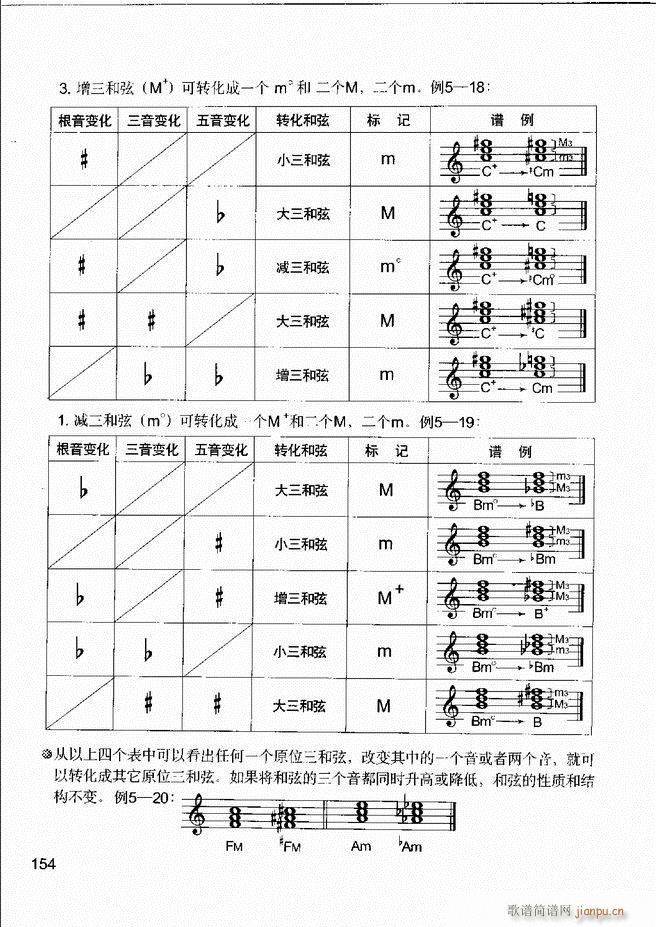 3. 增三和弦（M⁺）可转化成一个 m° 和 二个M，二个m。例5—18：
根音变化 三音变化 五音变化 转化和弦 标 记 谱 例
♯ 小三和弦 m C⁺ → ♯Cm M3 m3
♭ 大三和弦 M C⁺ → C
♯ ♭ 减三和弦 m° C⁺ → ♯Cm°
♯ ♯ 大三和弦 M C⁺ → ♯C
♭ ♭ 增三和弦 m C⁺ → Cm
1. 减三和弦（m°）可转化成一个M⁺和二个M，二个m。例5—19：
根音变化 三音变化 五音变化 转化和弦 标 记 谱 例
♭ 大三和弦 M Bm° → ♭B m3 M3
♯ 小三和弦 m Bm° → ♭Bm M3 m3
♭ ♯ 增三和弦 M⁺ Bm° → B⁺ M3 M3
♭ ♭ 小三和弦 m Bm° → ♭Bm M3 m3
♯ ♯ 大三和弦 M Bm° → B m3 M3
※从以上四个表中可以看出任何一个原位三和弦，改变其中的一个音或者两个音，就可
以转化成其它原位三和弦。如果将和弦的三个音都同时升高或降低，和弦的性质和结
构不变。例5—20：
FM ♯FM Am ♭Am
154
歌谱简谱网 jianpu.cn